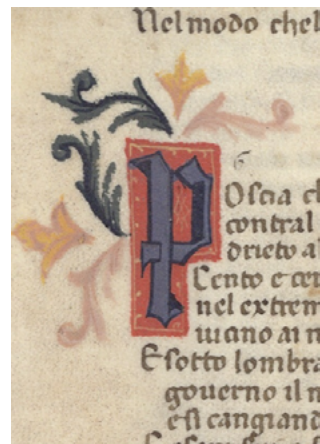 Nel modo chel
6
POscia ch
contral
drieto a
Cento e cen
nel extrem
uicino ai m
E sotto lombra
gouerno il m
e si cangiand